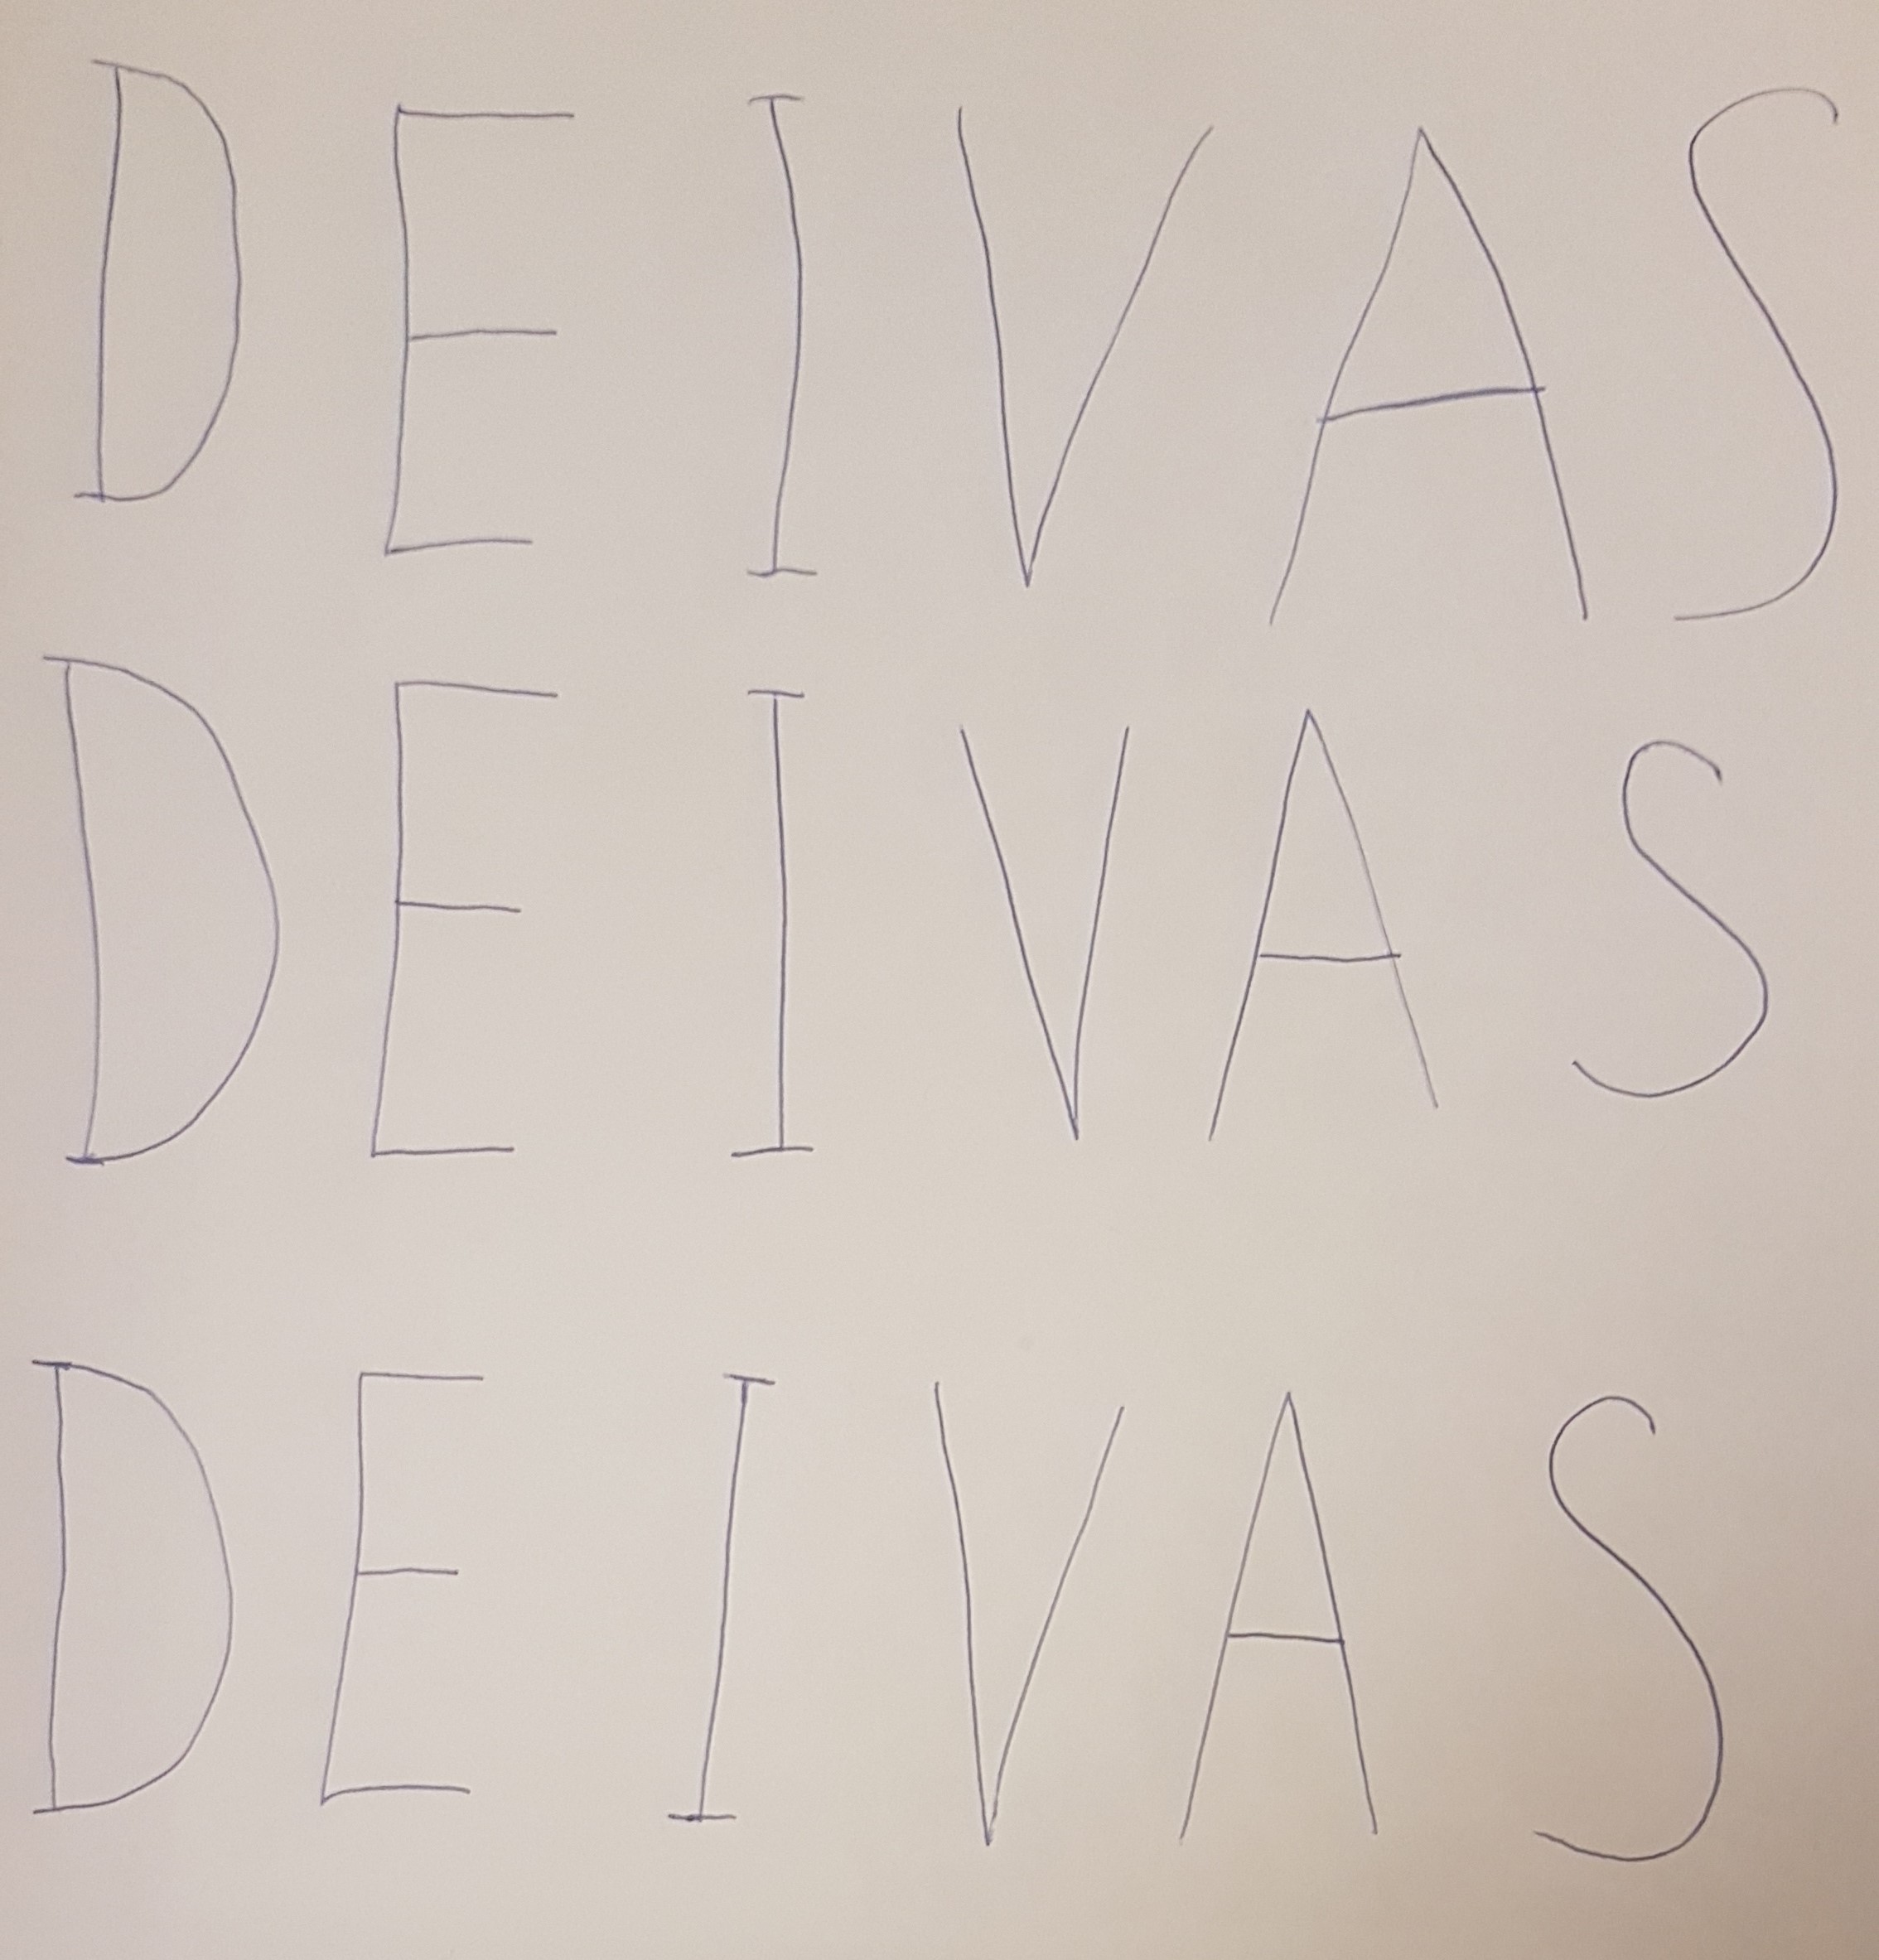 DEIVAS
DEIVAS
DEIVAS